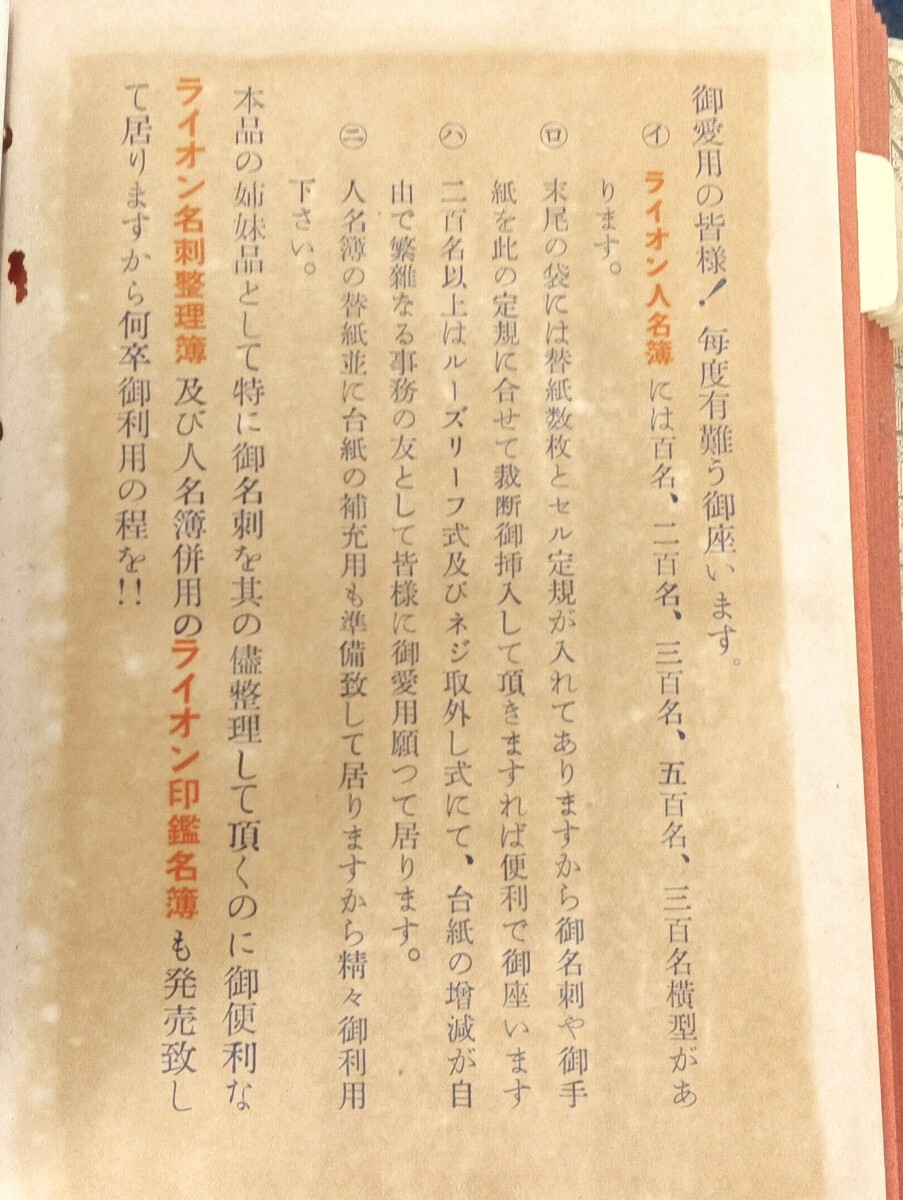 御愛用の皆様! 毎度有難う御座います。
㋑ ライオン人名簿には百名、二百名、三百名、五百名、三百名横型があ
ります。
㋺ 末尾の袋には替紙数枚とセル定規が入れてありますから御名刺や御手
紙を此の定規に合せて裁断御挿入して頂きますれば便利で御座います
㋩ 二百名以上はルーズリーフ式及びネジ取外し式にて、台紙の増減が自
由で繁雑なる事務の友として皆様に御愛用願つて居ります。
㋥ 人名簿の替紙並に台紙の補充用も準備致して居りますから精々御利用
下さい。
本品の姉妹品として特に御名刺を其の儘整理して頂くのに御便利な
ライオン名刺整理簿及び人名簿併用のライオン印鑑名簿も発売致し
て居りますから何卒御利用の程を!!